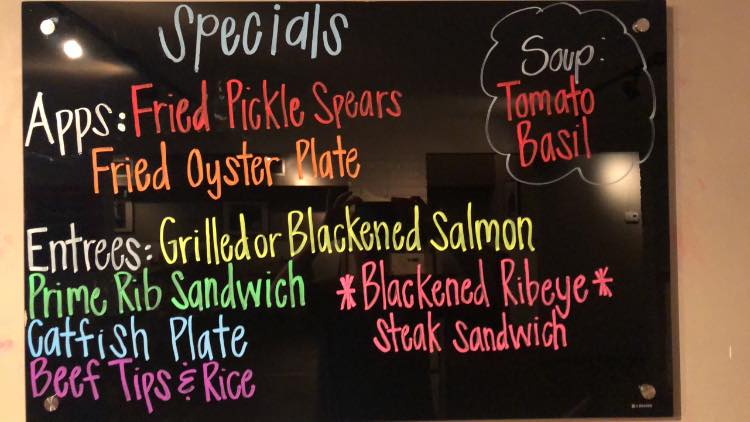 Specials
Soup:
Tomato
Basil
Apps: Fried Pickle Spears
Fried Oyster Plate
Entrees: Grilled or Blackened Salmon
Prime Rib Sandwich
*Blackened Ribeye*
Steak Sandwich
Catfish Plate
Beef Tips & Rice